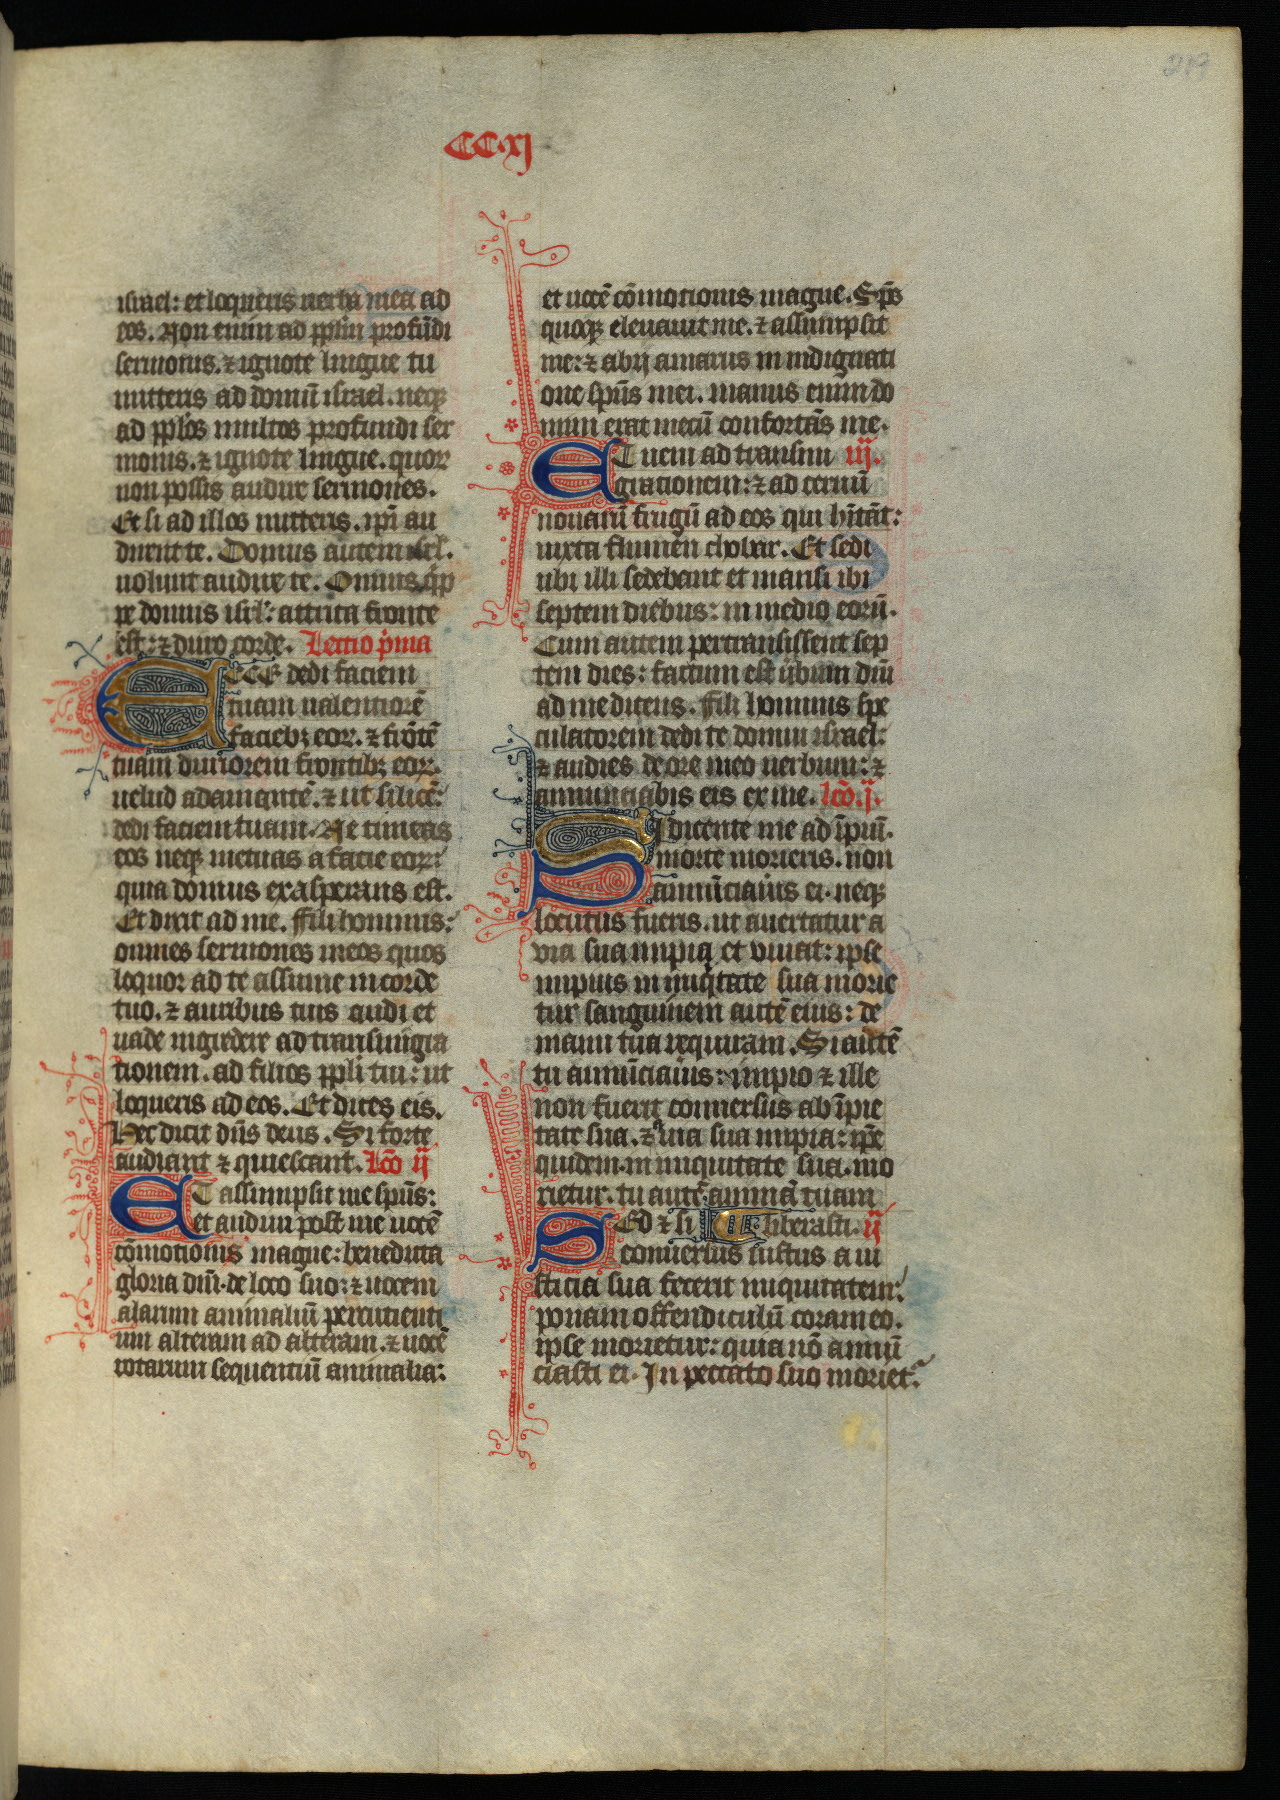 219
CC.xj
israel: et loqueris uerba mea ad
eos. Non enim ad pplm̄ profūdi
sermonis. ⁊ ignote lingue tu
mitteris ad domū israel. neqꝫ
ad pplōs multos profundi ser
monis. ⁊ ignote lingue. quoꝝ
non possis audire sermones.
Et si ad illos mitteris. ip̄i au
dirent te. Domus autem isrl.
nolunt audire te. Omnis q̄pp
pe domus isrl: attrita fronte
est: ⁊ duro corde. Lectio p̄ma
ECCE dedi faciem
tuam ualentiorē
faciebꝫ eoꝝ. ⁊ frōtē
tuam duriorem frontibꝫ eoꝝ.
uelud adamantē. ⁊ ut silicē:
dedi faciem tuam. Ne timeas
eos neqꝫ metuas a facie eoꝝ:
quia domus exasperans est.
Et dixit ad me. Fili hominis:
omnes sermones meos quos
loquor ad te assume in corde
tuo. ⁊ auribus tuis audi et
uade ingredere ad transmigra
tionem. ad filios ppl̄i tui: ut
loqueris ad eos. Et dices eis.
Hec dicit dn̄s deus. Si forte
audiant ⁊ quiescant. Lc̄o ij
ET assumpsit me spūs:
et audiui post me uocē
cōmotionis magne: benedicta
gloria dn̄i. de loco suo: ⁊ uocem
alarum animaliū percutienti
um alteram ad alteram. ⁊ uocē
rotarum sequentiū animalia:
et uocē cōmotionis magne. Sp̄s
quoqꝫ eleuauit me. ⁊ assumpsit
me: ⁊ abij amarus in indignati
one spūs mei. manus enim do
mini erat mecū confortās me.
ET ueni ad transmi iij.
grationem: ⁊ ad ceruū
nouarū frugū ad eos qui hītāt:
iuxta flumen chobar. Et sedi
ubi illi sedebant et mansi ibi
septem diebus: in medio eorū.
Cum autem pertransissent sep
tem dies: factum est ūbum dn̄i
ad me dicens. Fili hominis spe
culatorem dedi te domui israel:
⁊ audies de ore meo uerbum: ⁊
annunciabis eis ex me. Lc̄o. j.
SI dicente me ad īpiū.
morte morieris. non
annūciaūis ei. neqꝫ
locutus fueris. ut auertatur a
via sua impia et viuat: ipse
impius in iniq̄tate sua morie
tur sanguinem autē eius: de
manu tua requiram. Si autē
tu annūciaūis: impio ⁊ ille
non fuerit conuersus ab īpie
tate sua. ⁊ a uia sua impia: ip̄e
quidem in iniquitate sua. mo
rietur. tu autē animā tuam
SEd ⁊ si liberasti. ij
conuersus iustus a iu
sticia sua fecerit iniquitatem:
ponam offendiculū coram eo.
ipse morietur: quia nō annū
ciasti ei. In peccato suo moriet᷑.